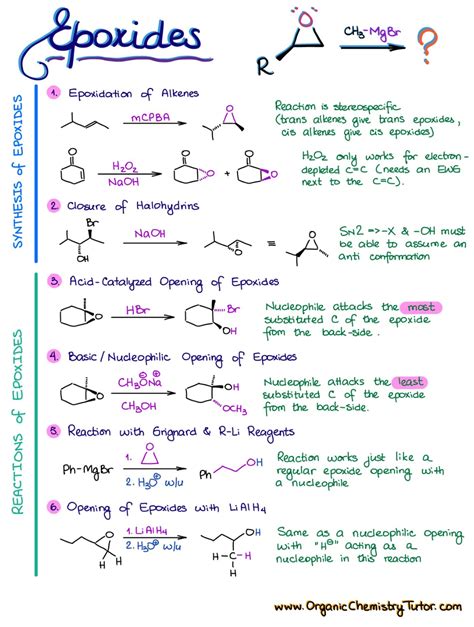 Epoxides
O
R
CH₃-MgBr
?
SYNTHESIS of EPOXIDES
1. Epoxidation of Alkenes
mCPBA
O
Reaction is stereospecific
(trans alkenes give trans epoxides,
cis alkenes give cis epoxides)
O
H₂O₂
NaOH
O
O
+
O
O
H₂O₂ only works for electron-
depleted C=C (needs an EWG
next to the C=C).
2. Closure of Halohydrins
Br
OH
NaOH
O
≡
O
SN2 =>-X & -OH must
be able to assume an
anti conformation
REACTIONS of EPOXIDES
3. Acid-Catalyzed Opening of Epoxides
O
HBr
Br
OH
Nucleophile attacks the most
substituted C of the epoxide
from the back-side.
4. Basic/Nucleophilic Opening of Epoxides
O
CH₃ONa
⊖ ⊕
CH₃OH
OH
OCH₃
Nucleophile attacks the least
substituted C of the epoxide
from the back-side.
5. Reaction with Grignard & R-Li Reagents
Ph-MgBr
1. O
2. H₃O⊕ w/u
Ph
OH
Reaction works just like a
regular epoxide opening with
a nucleophile
6. Opening of Epoxides with LiAlH₄
O
H
H
1. LiAlH₄
2. H₃O⊕ w/u
OH
H-C-H
H
Same as a nucleophilic opening
with "H⊖" acting as a
nucleophile in this reaction
www.OrganicChemistryTutor.com